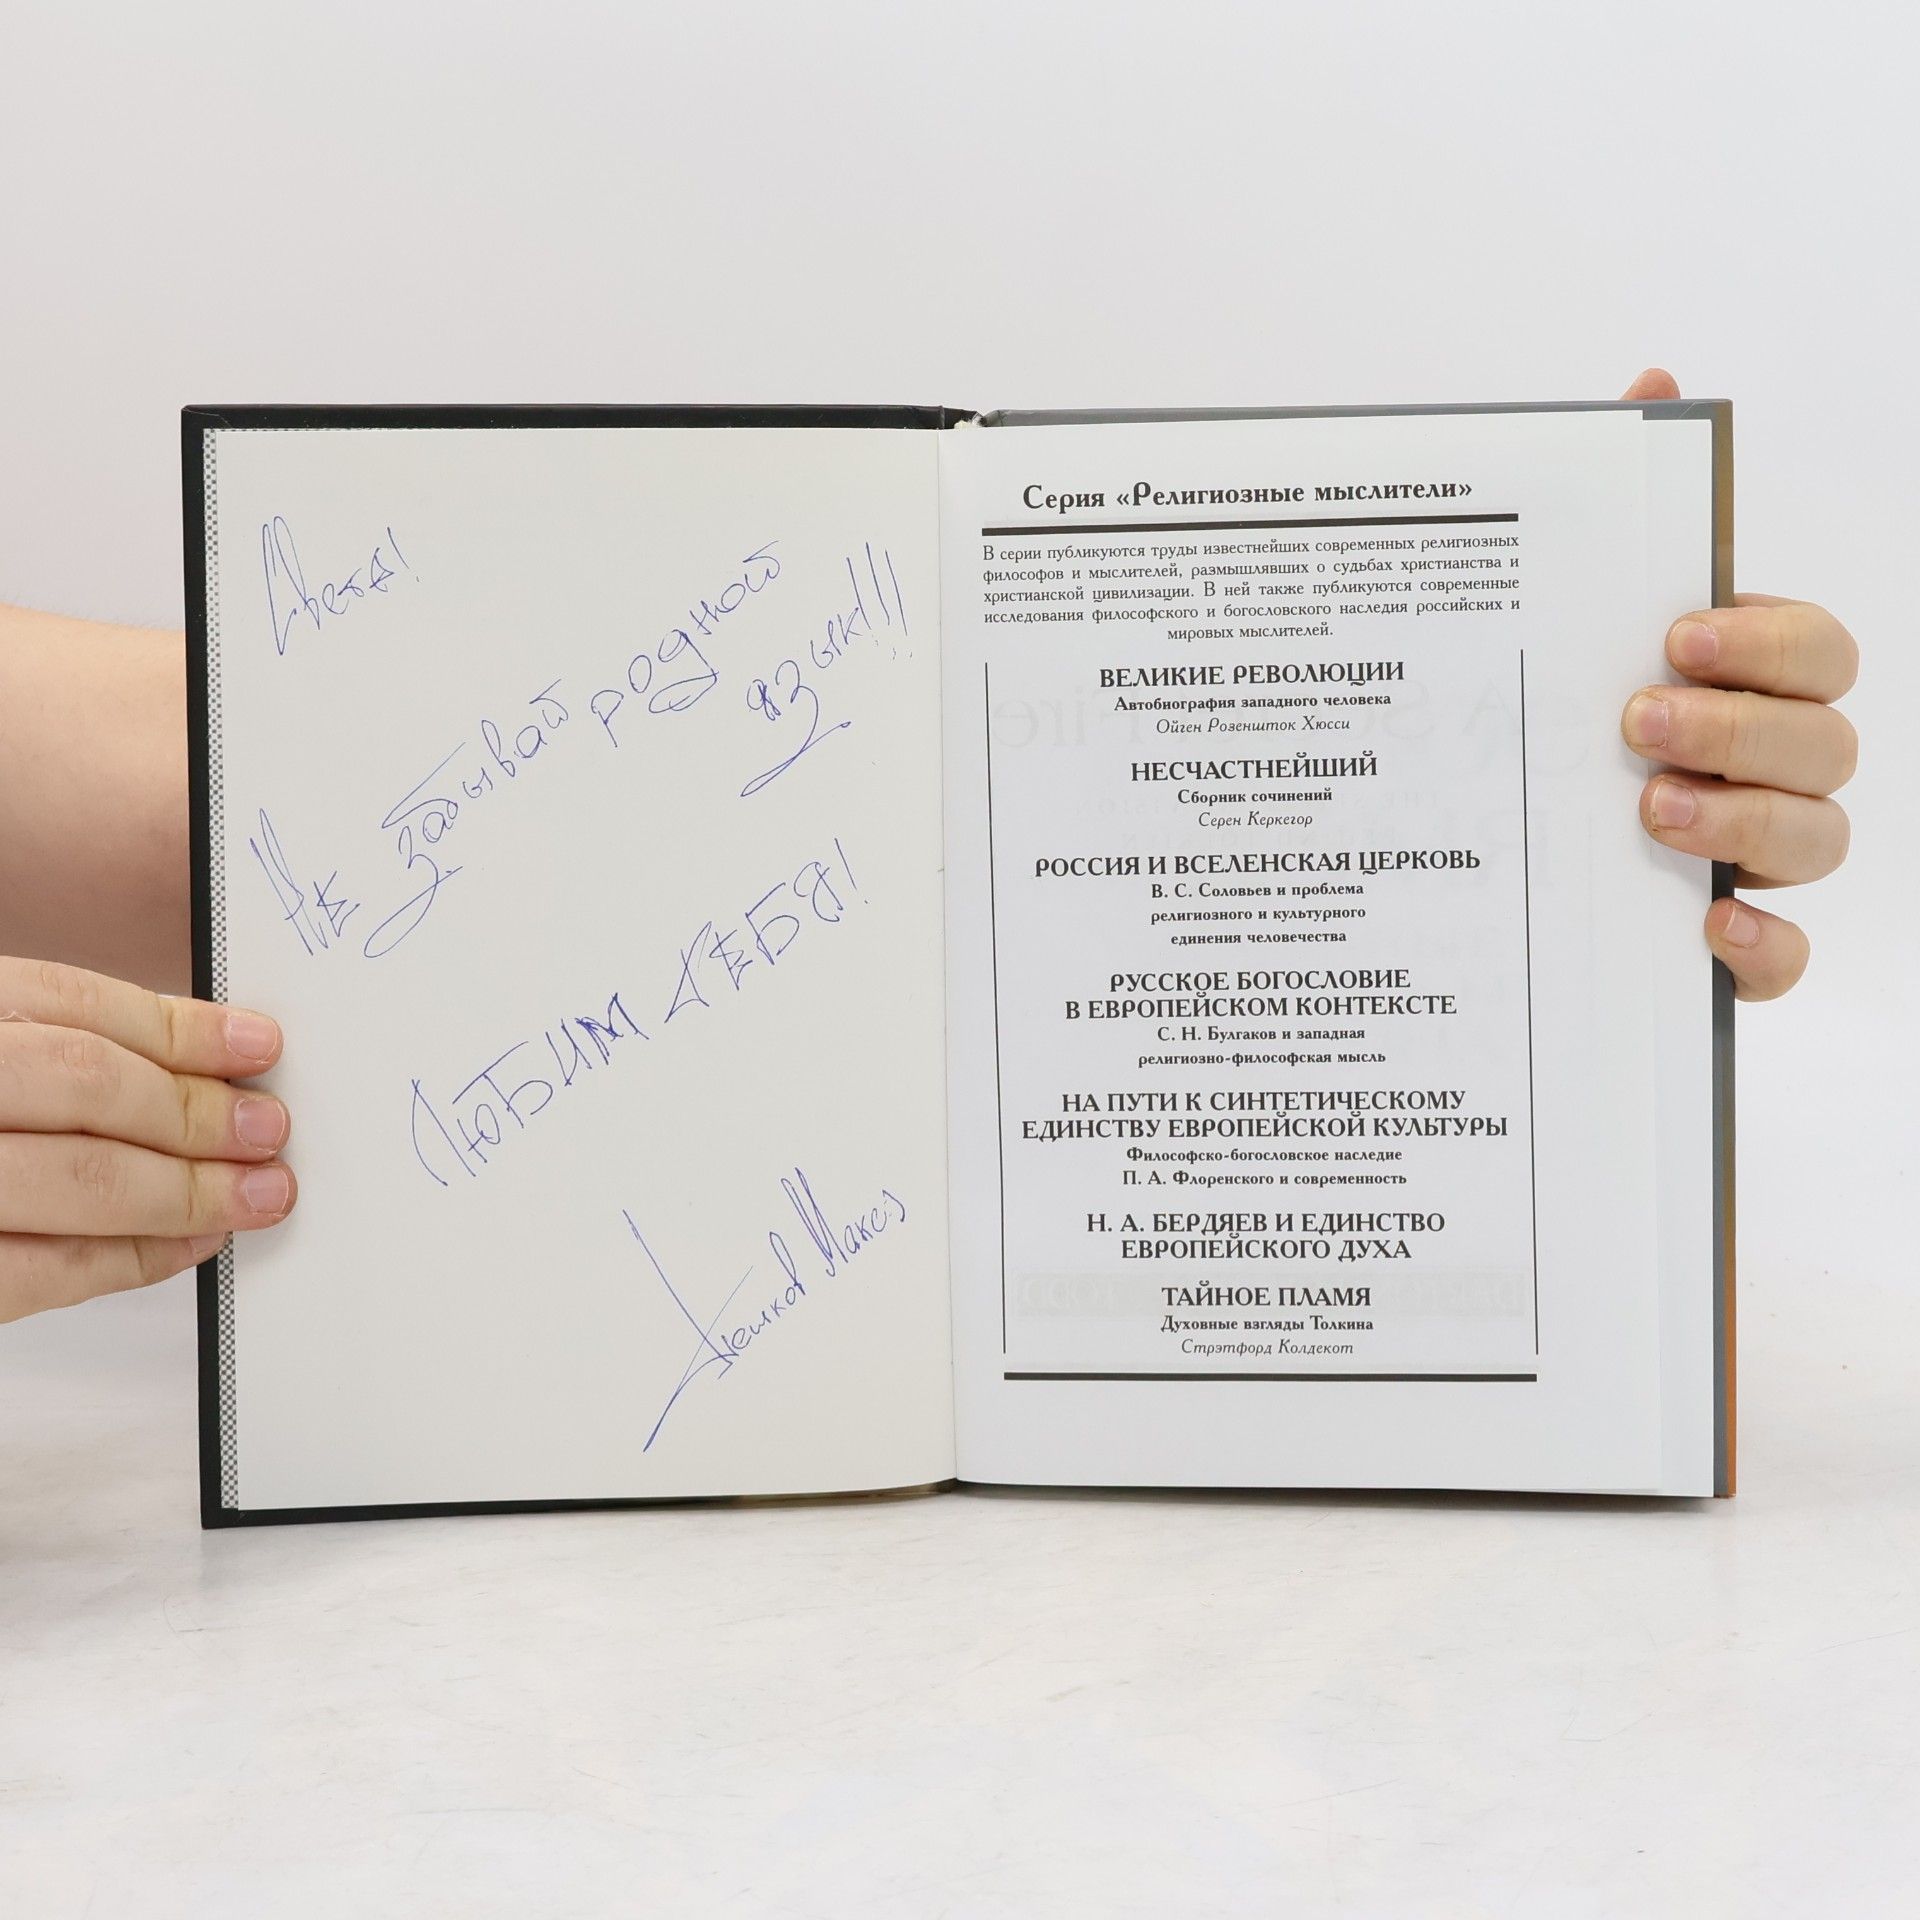 Света!
Не забывай родной
язык!!!
Любим тебя!
Макс:)
Серия «Религиозные мыслители»
В серии публикуются труды известнейших современных религиозных
философов и мыслителей, размышлявших о судьбах христианства и
христианской цивилизации. В ней также публикуются современные
исследования философского и богословского наследия российских и
мировых мыслителей.
ВЕЛИКИЕ РЕВОЛЮЦИИ
Автобиография западного человека
Ойген Розеншток Хюсси
НЕСЧАСТНЕЙШИЙ
Сборник сочинений
Серен Керкегор
РОССИЯ И ВСЕЛЕНСКАЯ ЦЕРКОВЬ
В. С. Соловьев и проблема
религиозного и культурного
единения человечества
РУССКОЕ БОГОСЛОВИЕ
В ЕВРОПЕЙСКОМ КОНТЕКСТЕ
С. Н. Булгаков и западная
религиозно-философская мысль
НА ПУТИ К СИНТЕТИЧЕСКОМУ
ЕДИНСТВУ ЕВРОПЕЙСКОЙ КУЛЬТУРЫ
Философско-богословское наследие
П. А. Флоренского и современность
Н. А. БЕРДЯЕВ И ЕДИНСТВО
ЕВРОПЕЙСКОГО ДУХА
ТАЙНОЕ ПЛАМЯ
Духовные взгляды Толкина
Стрэтфорд Колдекот